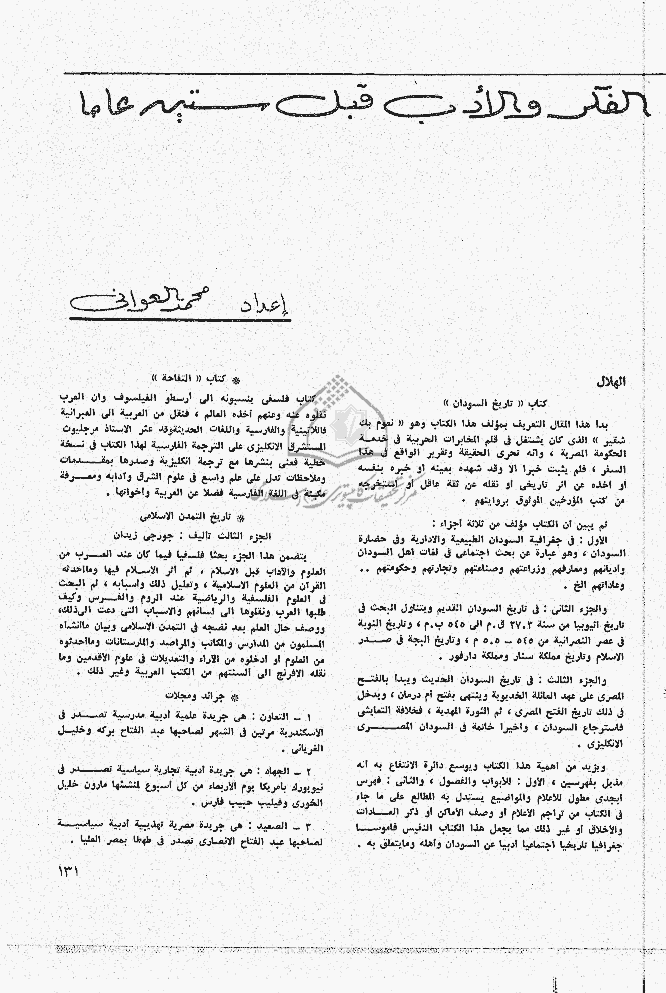 الفكر والأدب قبل ستين عاما
إعداد محمد العواني
الهلال
كتاب « تاريخ السودان »
بدا هذا المقال التعريف بمؤلف هذا الكتاب وهو « نعوم بك
شقير » الذى كان يشتغل فى قلم المخابرات الحربية فى خدمة
الحكومة المصرية ، وانه تحرى الحقيقة وتقرير الواقع فى هذا
السفر ، فلم يثبت خبرا الا وقد شهده بعينه او خبره بنفسه
او اخذه عن اثر تاريخى او نقله عن ثقة عاقل أو استخرجه
من كتب المؤرخين الموثوق بروايتهم .
ثم يبين أن الكتاب مؤلف من ثلاثة أجزاء :
الأول : فى جغرافية السودان الطبيعية والادارية وفى حضارة
السودان ، وهو عبارة عن بحث اجتماعى فى لغات أهل السودان
واديانهم ومعارفهم وزراعتهم وصناعتهم وتجارتهم وحكومتهم ..
وعاداتهم الخ .
والجزء الثانى : فى تاريخ السودان القديم ويتناول البحث فى
تاريخ اثيوبيا من سنة ٢٧.٣ ق.م الى ٥٤٥ ب.م ، وتاريخ النوبة
فى عصر النصرانية من ٥٤٥ – ٥.٥ م ، وتاريخ البجة فى صدر
الاسلام وتاريخ مملكة سنار ومملكة دارفور .
والجزء الثالث : فى تاريخ السودان الحديث ويبدا بالفتح
المصرى على عهد العائلة الخديوية وينتهى بفتح أم درمان ، ويدخل
فى ذلك تاريخ الفتح المصرى ، ثم الثورة المهدية ، فخلافة التعايشى
فاسترجاع السودان ، واخيرا خاتمة فى السودان المصرى
الانكليزى .
ويزيد من اهمية هذا الكتاب ويوسع دائرة الانتفاع به أنه
مذيل بفهرسين ، الأول : للأبواب والفصول ، والثانى : فهرس
ابجدى مطول للأعلام والمواضيع يستدل به المطالع على ما جاء
فى الكتاب من تراجم الأعلام او وصف الأماكن أو ذكر العادات
والأخلاق أو غير ذلك مما يجعل هذا الكتاب النفيس قاموسا
جغرافيا تاريخيا اجتماعيا ادبيا عن السودان وأهله ومايتعلق به .
* كتاب « التفاحة »
كتاب فلسفى ينسبونه الى أرسطو الفيلسوف وان العرب
نقلوه عنه وعنهم اخذه العالم ، فنقل من العربية الى العبرانية
فاللاتينية والفارسية واللغات الحديثة وقد عثر الاستاذ مرجليوث
المستشرق الانكليزى على الترجمة الفارسية لهذا الكتاب فى نسخة
خطية فعنى بنشرها مع ترجمة انكليزية وصدرها بمقدمات
وملاحظات تدل على علم واسع فى علوم الشرق وآدابه ومعرفة
مكينة فى اللغة الفارسية فضلا عن العربية واخواتها .
* تاريخ التمدن الاسلامى
الجزء الثالث تاليف : جورجى زيدان
يتضمن هذا الجزء بحثا فلسفيا فيما كان عند العرب من
العلوم والآداب قبل الاسلام ، ثم اثر الاسلام فيها وماأحدثه
القرآن من العلوم الاسلامية ، وتعليل ذلك وأسبابه ، ثم البحث
فى العلوم الفلسفية والرياضية عند الروم والفرس وكيف
طلبها العرب ونقلوها الى لسانهم والأسباب التى دعت الى ذلك،
ووصف حال العلم بعد نضجه فى التمدن الاسلامى وبيان ماأنشاه
المسلمون من المدارس والمكاتب والمراصد والمارستانات وماأحدثوه
من العلوم او ادخلوه من الآراء والتعديلات فى علوم الأقدمين وما
نقله الافرنج الى السنتهم من الكتب العربية وغير ذلك .
* جرائد ومجلات
١ – التعاون : هى جريدة علمية أدبية مدرسية تصدر فى
الاسكندرية مرتين فى الشهر لصاحبها عبد الفتاح بركه وخليل
الغريانى .
٢ – الجهاد : هى جريدة أدبية تجارية سياسية تصدر فى
نيويورك بأمريكا يوم الأربعاء من كل أسبوع لمنشئها مارون خليل
الخورى وفيليب حبيب فارس .
٣ – الصعيد : هى جريدة مصرية تهذيبية أدبية سياسية
لصاحبها عبد الفتاح الانصارى تصدر فى طهطا بمصر العليا .
١٣١